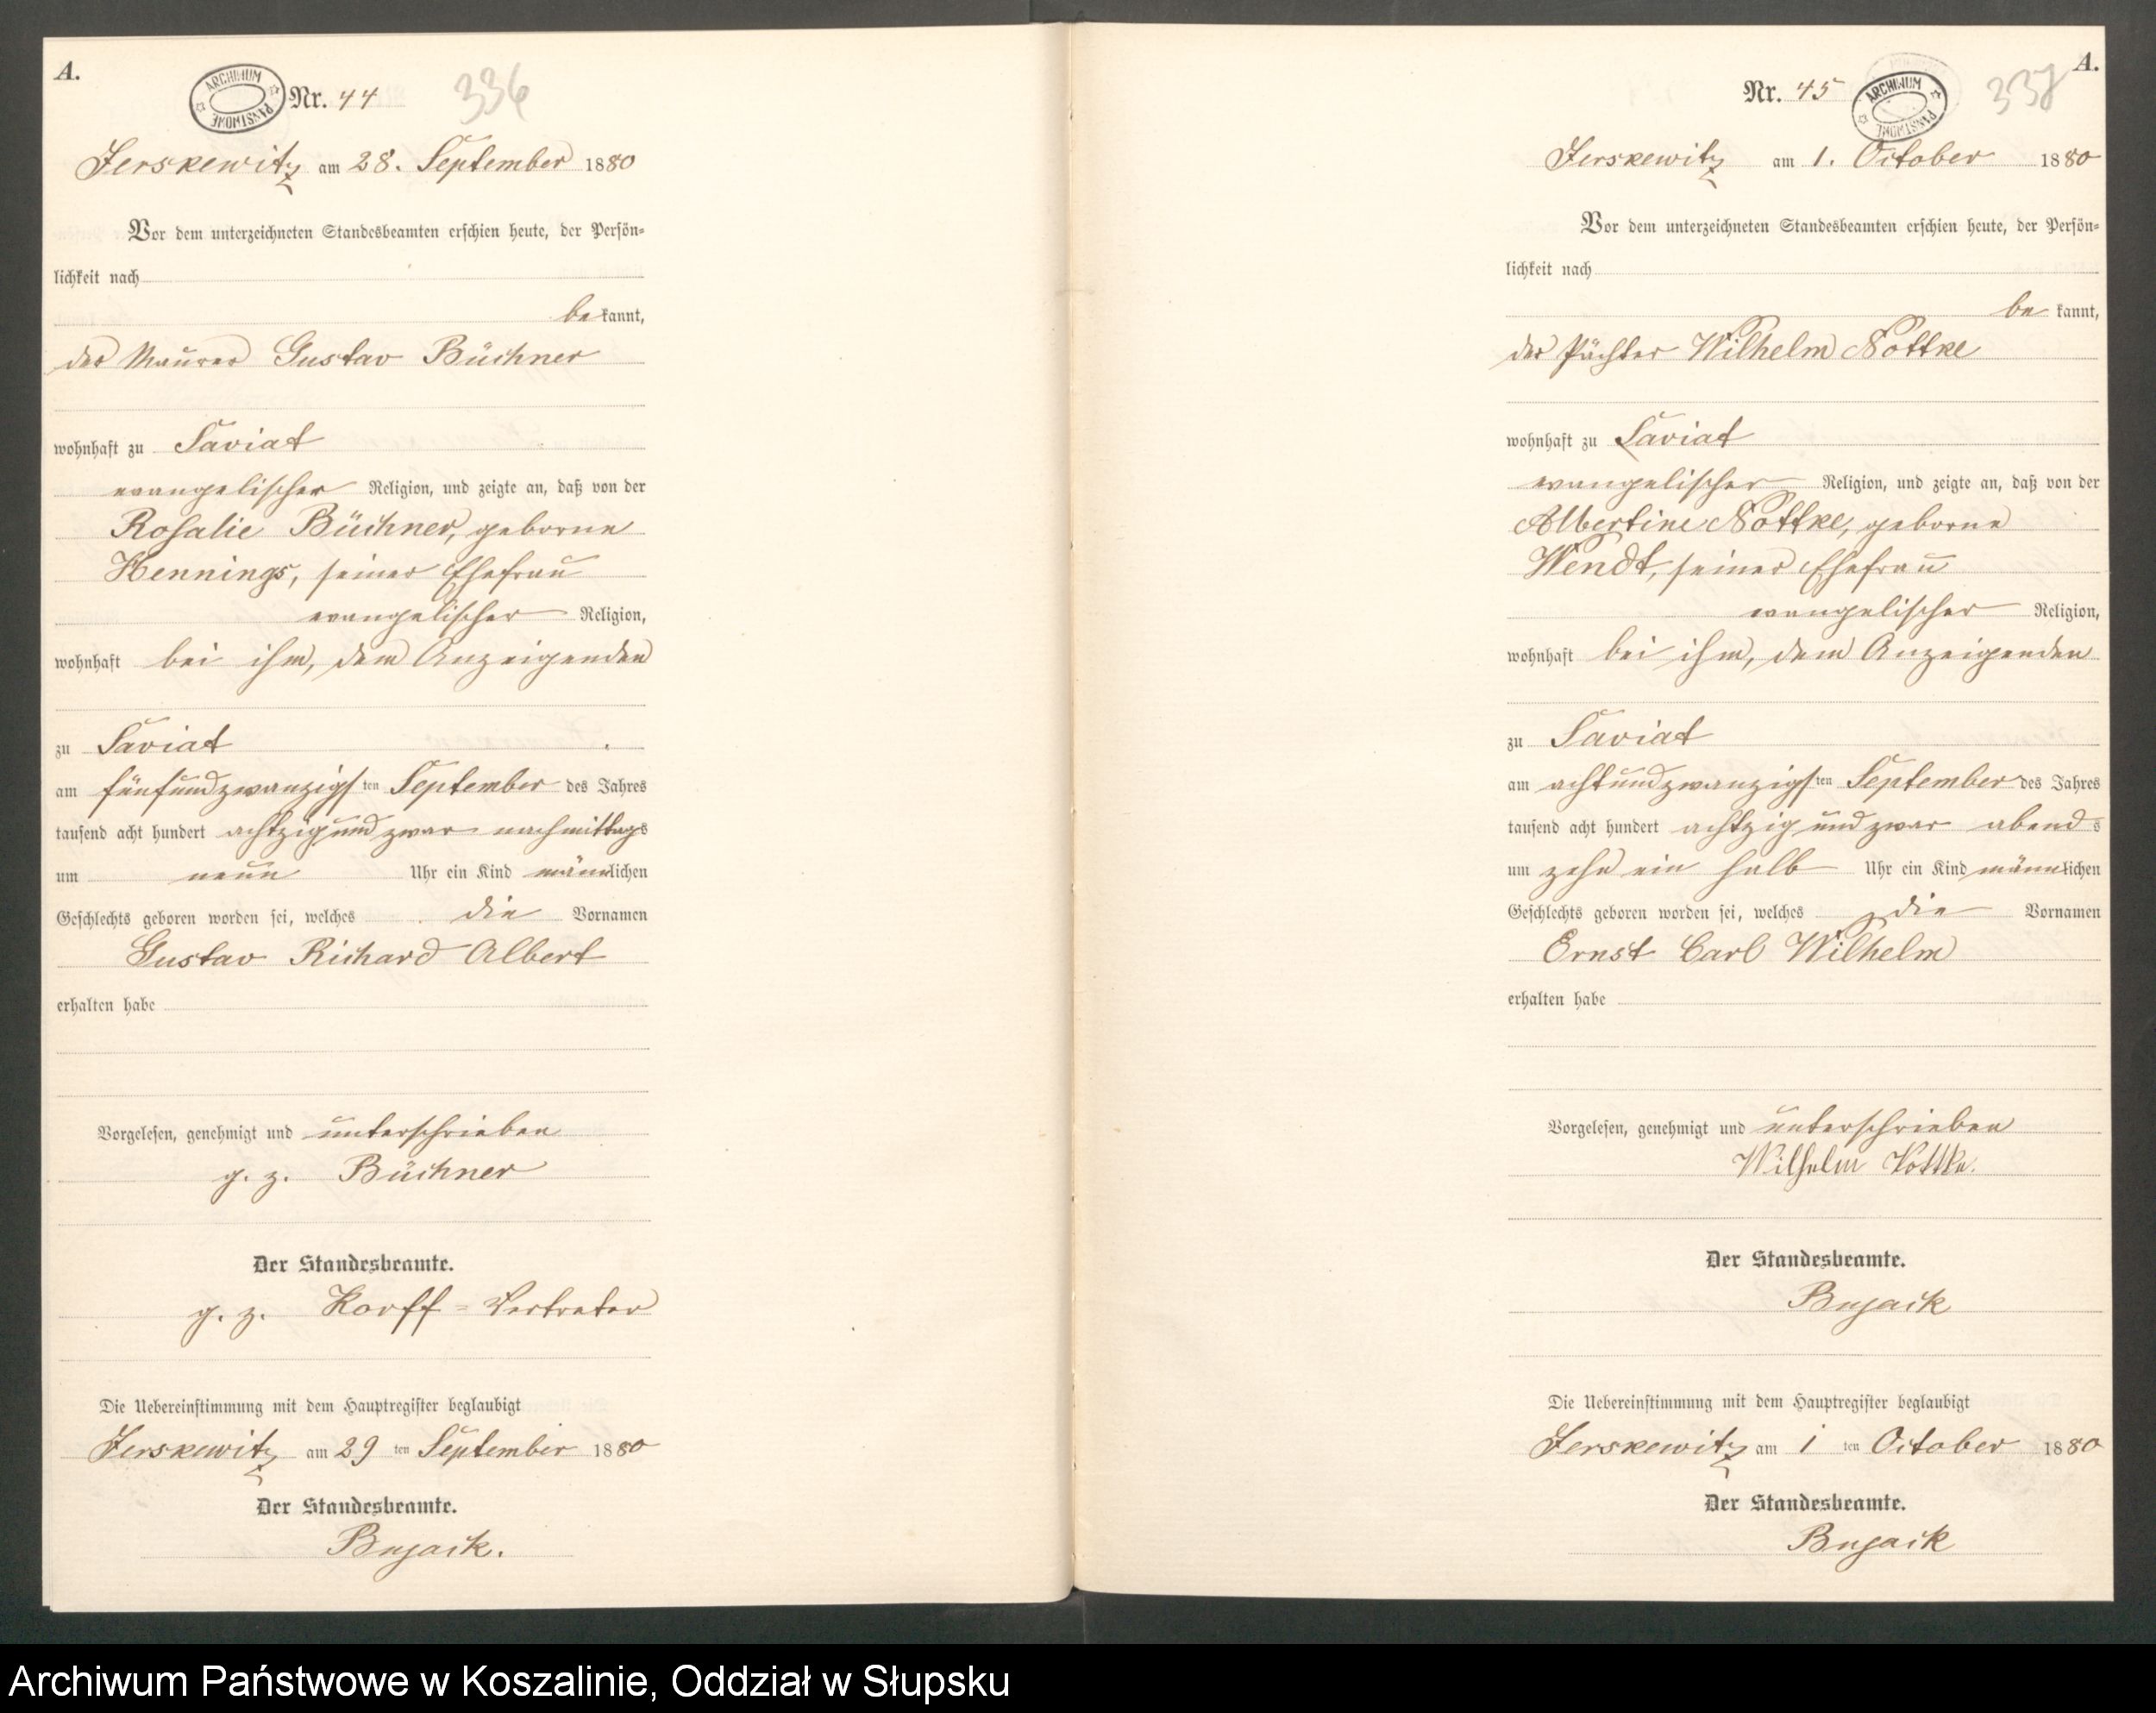 A.
ARCHIWUM PAŃSTWOWE
Nr. 44
336
Jerskewitz am 28. September 1880
Vor dem unterzeichneten Standesbeamten erschien heute, der Persön-
lichkeit nach
be kannt,
der Maurer Gustav Büchner
wohnhaft zu Saviat
evangelischer Religion, und zeigte an, daß von der
Rosalie Büchner, geborne
Hennings, seiner Ehefrau
evangelischer Religion,
wohnhaft bei ihm, dem Anzeigenden
zu Saviat
am fünfundzwanzigsten September des Jahres
tausend acht hundert achtzig und zwar nachmittags
um neun Uhr ein Kind männlichen
Geschlechts geboren worden sei, welches die Vornamen
Gustav Richard Albert
erhalten habe
Vorgelesen, genehmigt und unterschrieben
g. z. Büchner
Der Standesbeamte.
g. z. Korff = Vertreter
Die Uebereinstimmung mit dem Hauptregister beglaubigt
Jerskewitz am 29 ten September 1880
Der Standesbeamte.
Bujack.
A.
Nr. 45
ARCHIWUM PAŃSTWOWE
337
Jerskewitz am 1. October 1880
Vor dem unterzeichneten Standesbeamten erschien heute, der Persön-
lichkeit nach
be kannt,
der Pächter Wilhelm Nottke
wohnhaft zu Saviat
evangelischer Religion, und zeigte an, daß von der
Albertine Nottke, geborne
Wendt, seiner Ehefrau
evangelischer Religion,
wohnhaft bei ihm, dem Anzeigenden
zu Saviat
am achtundzwanzigsten September des Jahres
tausend acht hundert achtzig und zwar abends
um zehn ein halb Uhr ein Kind männlichen
Geschlechts geboren worden sei, welches die Vornamen
Ernst Carl Wilhelm
erhalten habe
Vorgelesen, genehmigt und unterschrieben
Wilhelm Nottke.
Der Standesbeamte.
Bujack
Die Uebereinstimmung mit dem Hauptregister beglaubigt
Jerskewitz am 1 ten October 1880
Der Standesbeamte.
Bujack
Archiwum Państwowe w Koszalinie, Oddział w Słupsku